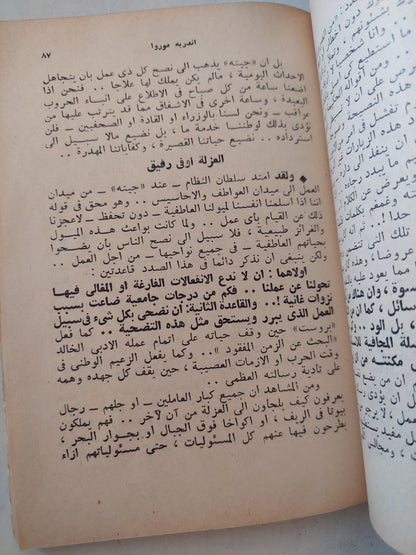 اندريه موروا
٨٧
بل ان «جيته» يذهب الى نصح كل ذى عمل بان يتجاهل
الاحداث اليومية ، مالم يكن يملك لها علاجا .. فنحن اذا
اضعنا ساعة من كل صباح فى الاطلاع على انباء الحروب
البعيدة ، وساعة اخرى فى الاشفاق مما قد يترتب عليها من
عواقب ــ ونحن لسنا بالوزراء او القادة او الصحفيين ــ فلن
نؤدى بذلك لوطننا خدمة ما ، بل نضيع مالا سبيل الى
استرداده : نضيع حياتنا القصيرة ، وكفاياتنا المهدرة ..
العزلة أوفى رفيق
● ولقد امتد سلطان النظام ــ عند «جيته» ــ من ميدان
العمل الى ميدان العواطف والاحاسيس .. وهو محق فى قوله
اننا اذا اسلمنا انفسنا لميولنا العاطفية ــ دون تحفظ ــ لاعجزنا
ذلك عن القيام باى عمل .. ولما كانت بواعث هذه الميول
والغرائز طبيعية ، فلا سبيل الى نصح الناس بان يضحوا
بحياتهم العاطفية ــ فى جميع نواحيها ــ من اجل العمل ..
ولكن ينبغى ان نذكر دائما فى هذا الصدد قاعدتين :
اولاهما : ان لا ندع الانفعالات الفارغة او المغالى فيها
تحولنا عن عملنا .. فكم من درجات جامعية ضاعت بسبب
نزوات غانية !.. والقاعدة الثانية: أن نضحى بكل شىء فى سبيل
العمل الذى يبرر ويستحق مثل هذه التضحية .. كما فعل
«بروست» حين وقف حياته على اتمام عمله الادبى الخالد
«البحث عن الزمن المفقود » .. وكما يفعل الزعيم الوطنى فى
وقت الحرب او الازمات العصبية ، حين يقف كل جهده وهمه
على تادية رسالته العظمى ..
ومن المشاهد ان جميع كبار العاملين ــ او جلهم ــ رجال
يعرفون كيف يلجاون الى العزلة من آن لآخر .. فهم يملكون
بيوتا فى الريف ، او اكواخا فوق الجبال او بجوار البحر ،
يطرحون فيها عنهم كل المسئوليات ، حتى مسئولياتهم ازاء